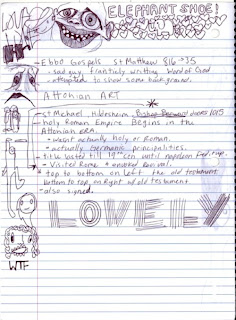 ELEPHANT SHOE!
- Ebbo Gospels St Matthew 816-35
- sad guy frantically writting word of God
- attempted to show some background.
Attonian ART
- St Michael, Hildesheim Bishop Bernward doors 1015
- holy Roman Empire Begins in the
Attonian ERA.
- wasn't actually holy or Roman.
- actually Germanic principalities.
- title lasted till 19th cen until napoleon
- visited Rome &
- top to bottom on left the old testament
bottom to top on right old testament
- also signed.
LOVELY
WTF